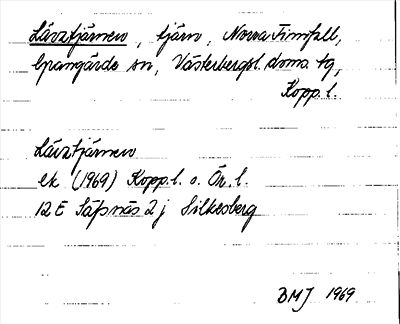 Lävztjärnen, tjärn, Norra Finnfall,
Grangärde sn, Västerbergsl. doms. tg,
Kopp. l.
Lävztjärnen
ek (1969) Kopp. l. o. Ör. l.
12 E Säfsnäs 2 j Silkesberg
BMJ 1969